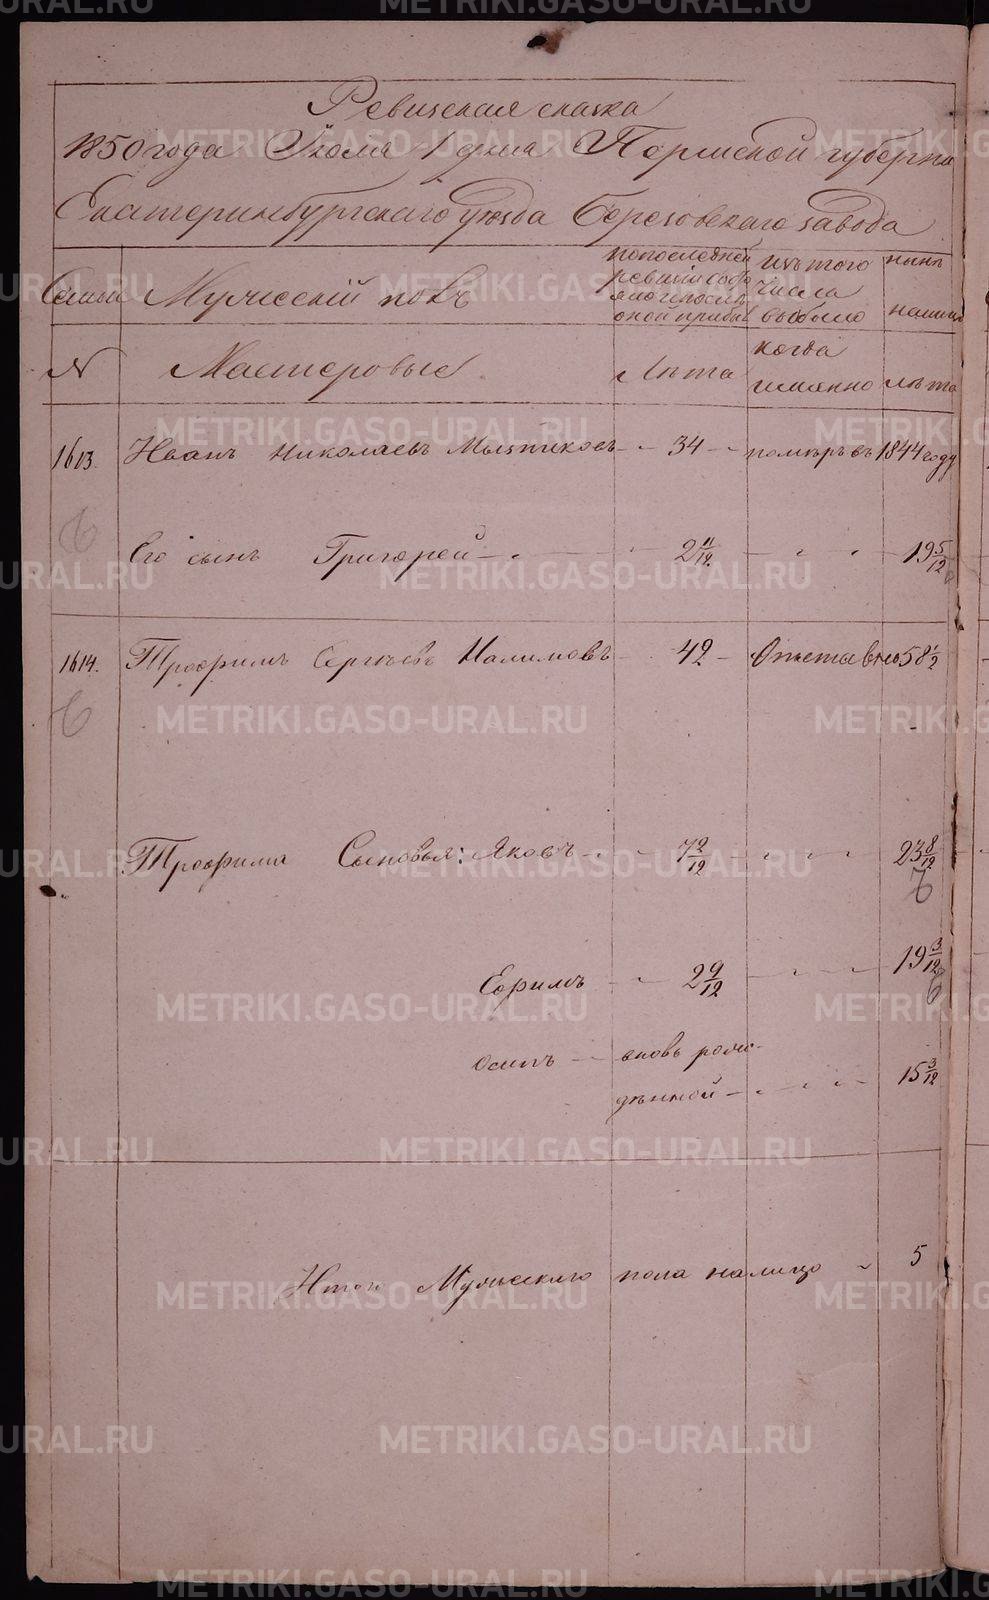 Ревизская сказка
1850 года Июля 1 дня Пермской губернии
Екатеринбургскаго уезда Березовскаго завода
Семьи Мужескiй полъ
по последней ревизiи состояло и после оной прибыло
изъ того числа выбыло
нынѣ налицо
N Мастеровые Лѣта когда именно лѣта
1613. Иванъ Николаевъ - 34 - помѣръ въ 1844 году
Его сынъ Григорей - 2 11/12. - 19 5/12
1614. Трофимъ Сергѣевъ Налимовъ - 42 - Отставно 58 1/2
Трофима Сыновья: Яковъ - 7 2/12 - 23 8/12
Ефимъ - 2 9/12 - 19 3/12
Осипъ - вновь рож-
дѣнной - 15 3/12
Итого Мужескаго пола налицо - 5
METRIKI.GASO-URAL.RU